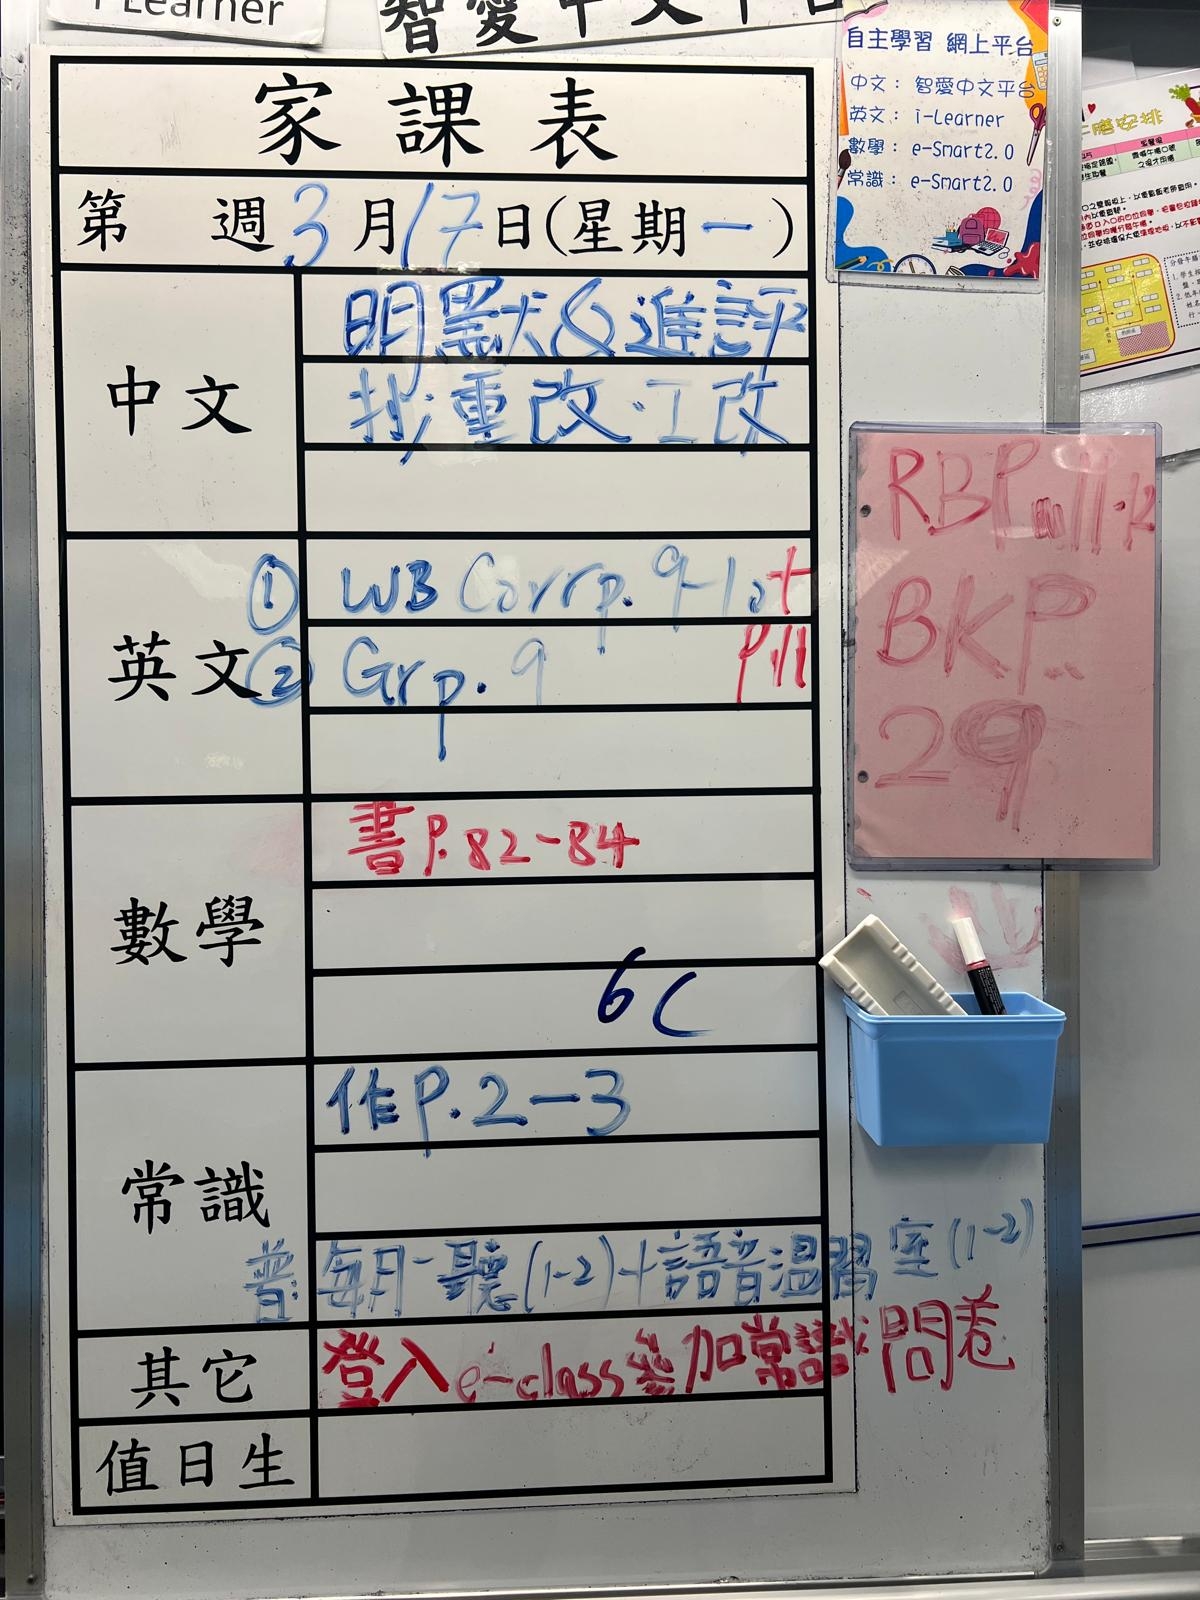 i-Learner
智愛中文平台
家課表
第 週3月17日(星期一)
中文
明默&進評
抄重改·工改
英文
① WB Corr p. 9-10 +
② Gr p. 9 p.11
數學
書 P. 82-84
6C
常識
作 P. 2-3
普: 每月一聽(1-2)+語音溫習室(1-2)
其它
登入 e-class 參加常識問卷
值日生
自主學習 網上平台
中文： 智愛中文平台
英文： i-Learner
數學： e-Smart2.0
常識： e-Smart2.0
RBP. 11-12
BKP.
29
午膳安排